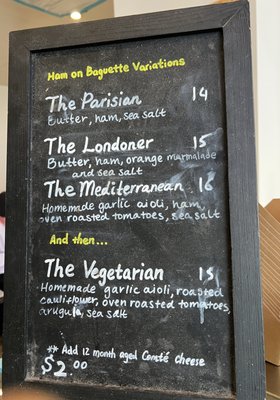 Ham on Baguette Variations
The Parisian 14
Butter, ham, sea salt
The Londoner 15
Butter, ham, orange marmalade
and sea salt
The Mediterranean 16
Homemade garlic aioli, ham,
oven roasted tomatoes, sea salt
And then...
The Vegetarian 15
Homemade garlic aioli, roasted
cauliflower, oven roasted tomatoes,
arugula, sea salt
** Add 12 month aged Comté cheese
$2.00